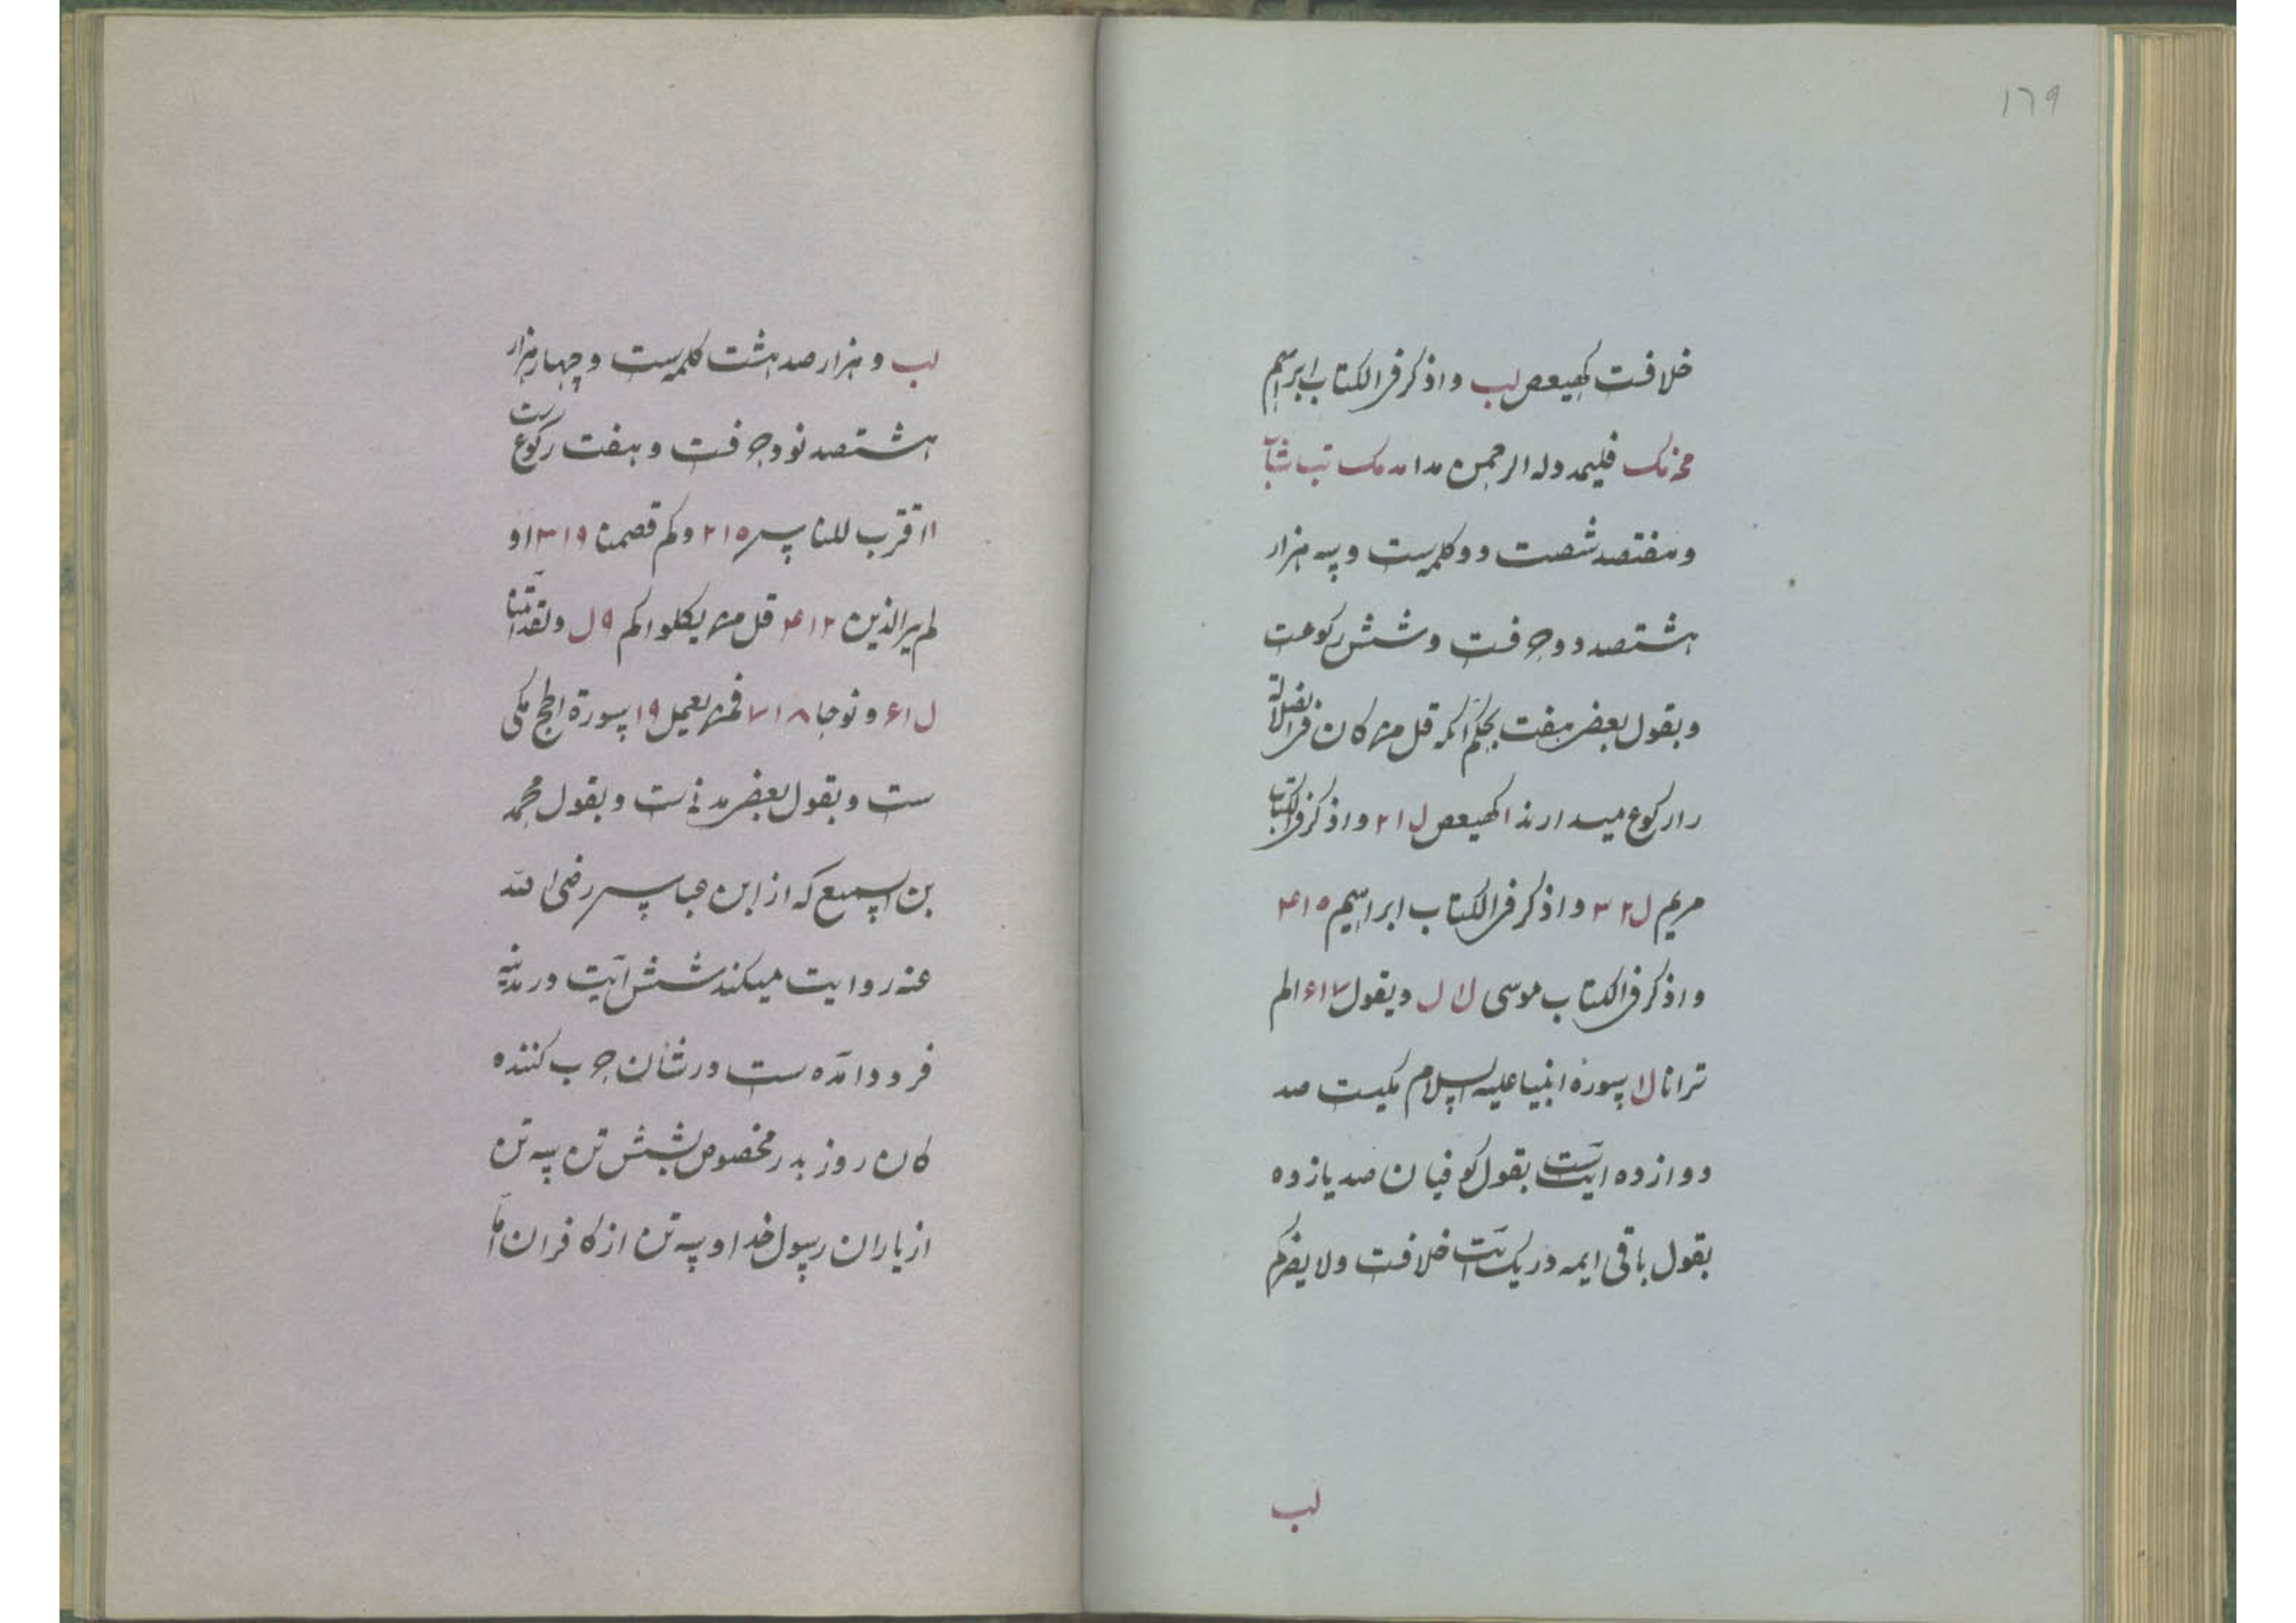 ۱۶۹
خلافست کهیعص لب واذکر فی الکتاب ابرهیم
فلیمدد له الرحمن مدا
و هفتصد شصت دو کلمه ست و سه هزار
هشتصد دو حرفست و شش رکوعست
و بقول بعضی هفت بحکم آنکه قل من کان فی الضلالة
را رکوع میدارند ا کهیعص ل ۲۱ واذکر فی الکتاب
مریم ل ۲ ۳ واذکر فی الکتاب ابراهیم ۱۵ ۴
واذکر فی الکتاب موسی لا ل ویقول ۱۷ ۶ الم
تر انا لا سورة انبیا علیه السلام مکیست صد
دوازده ایتست بقول کوفیان صد یازده
بقول باقی ایمه در یک ایت خلافست ولا یضرکم
لب
لب و هزار صد هشت کلمه ست و چهار هزار
هشتصد نود حرفست و هفت رکوعست
ا اقترب للناس ۲۱۵ وکم قصمنا ۳۱۹ او
لم یر الذین ۴۱۲ قل من یکلوکم ۹ ل ولقد اتینا
ل ۶۱ ونوحا ۷۱۸ فمن یعمل ۱۹ سورة الحج مکی
ست و بقول بعضی مدنی ست و بقول محمد
بن السمیع که از ابن عباس رضی الله
عنه روایت میکند شش ایت در مدینه
فرود امده ست در شان حرب کننده
کان روز بدر مخصوص بشش تن سه تن
از یاران رسول خدا و سه تن از کافران اما